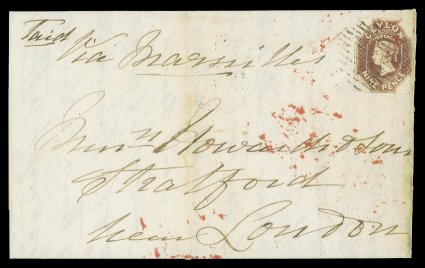 Paid
Via Marseilles
CEYLON
POSTAGE
NINE PENCE
Messrs Howards & Sons
Stratford
near London